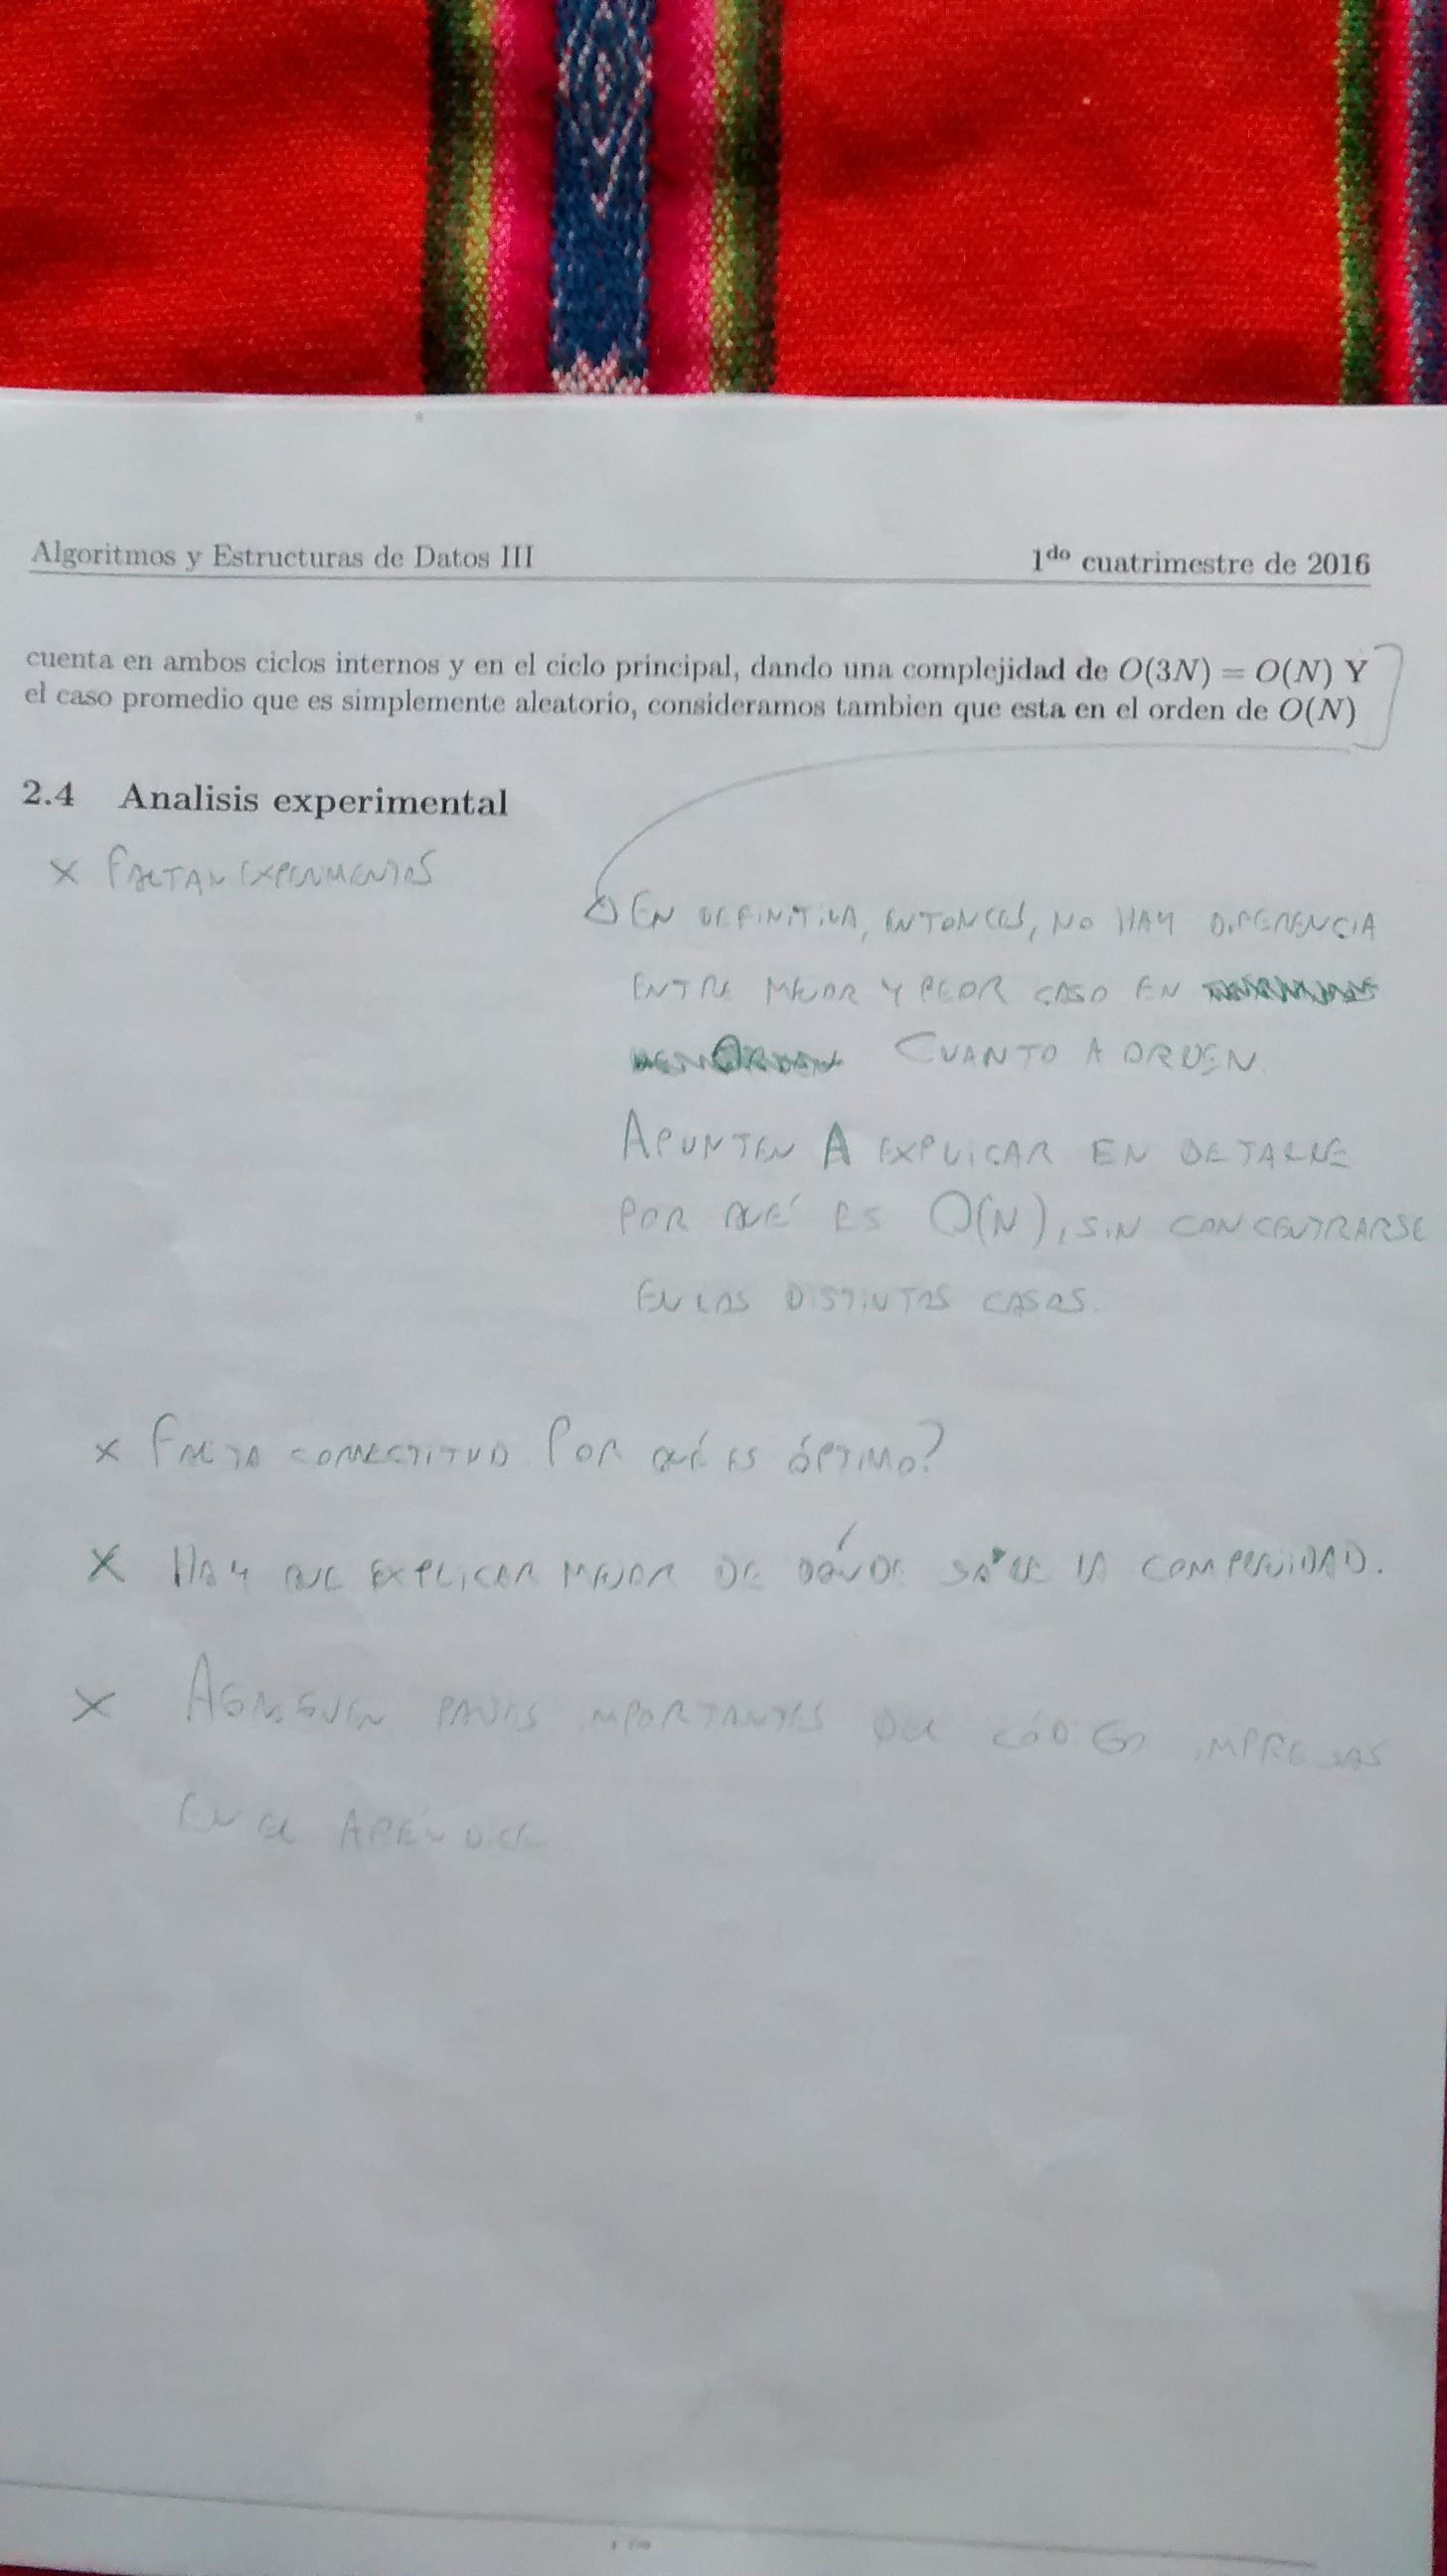 Algoritmos y Estructuras de Datos III 1do cuatrimestre de 2016
cuenta en ambos ciclos internos y en el ciclo principal, dando una complejidad de O(3N) = O(N) Y
el caso promedio que es simplemente aleatorio, consideramos tambien que esta en el orden de O(N)
2.4 Analisis experimental
× FALTAN EXPERIMENTOS
EN DEFINITIVA, ENTONCES, NO HAY DIFERENCIA
ENTRE MEJOR Y PEOR CASO EN
CUANTO A ORDEN.
APUNTEN A EXPLICAR EN DETALLE
POR QUÉ ES O(N), SIN CONCENTRARSE
EN LOS DISTINTOS CASOS.
× FALTA CORRECTITUD. POR QUÉ ES ÓPTIMO?
× HAY QUE EXPLICAR MEJOR DE DÓNDE SALE LA COMPLEJIDAD.
× AGREGUEN PARTES IMPORTANTES DEL CÓDIGO IMPRESAS
EN EL APÉNDICE